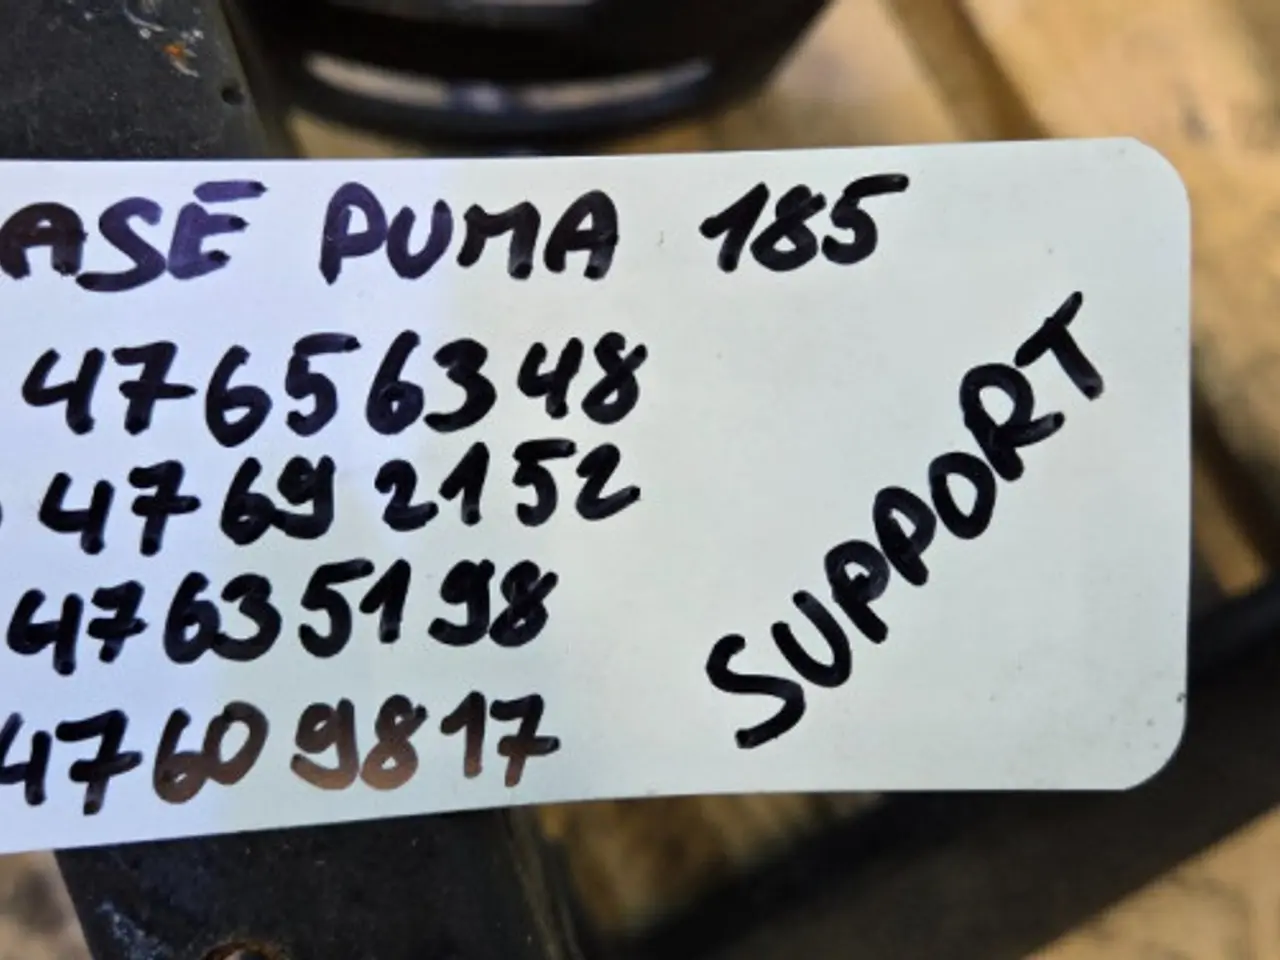 ASE PUMA 185
47656348
47692152
47635198
47609817
SUPPORT